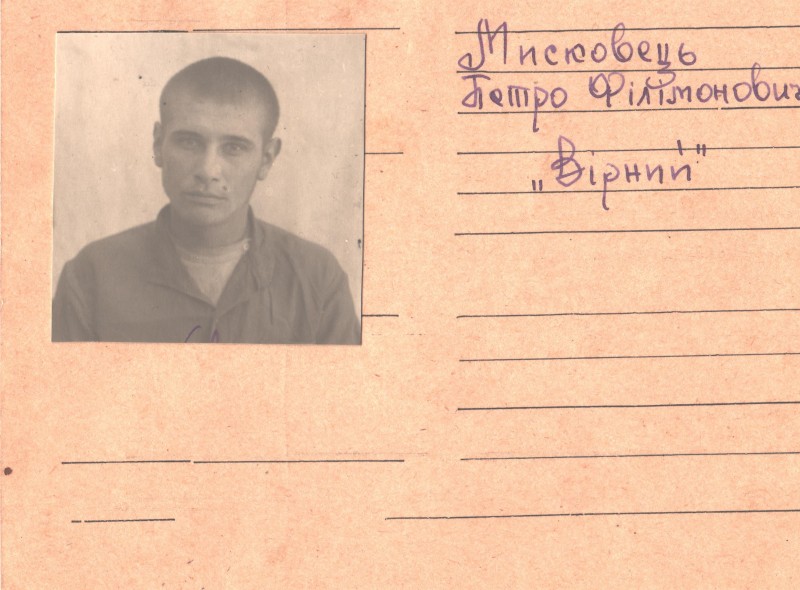 Мисковець
Петро Філімонович
„Вірний"